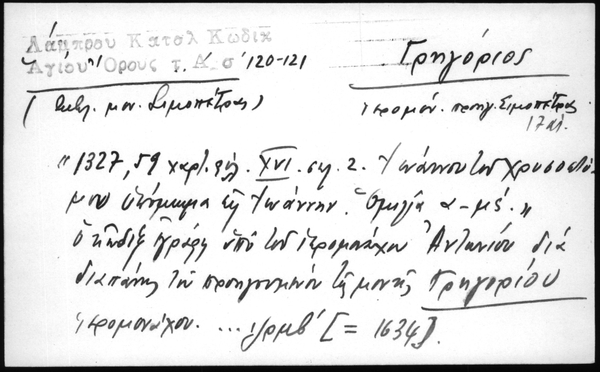 Λάμπρου Κατάλ Κωδίκ
Ἁγίου Ὄρους τ. Α' σ' 120-121
Γρηγόριος
(Βιβλ. μον. Σιμοπέτρας)
ἱερομόν. προηγ. Σιμοπέτρας
17 αἰ.
" 1327, 59 χαρτ. φύλ. XVI. σελ. 2. Ἰωάννου τοῦ Χρυσοστό-
μου ὑπόμνημα εἰς Ἰωάννην. Ὁμιλία α - μέ. "
Ὁ κῶδιξ ἐγράφη ὑπὸ τοῦ ἱερομονάχου Ἀντωνίου διὰ
δαπάνης τοῦ προηγουμένου τῆς μονῆς Γρηγορίου
ἱερομονάχου. ... ζρμβ' [= 1634].